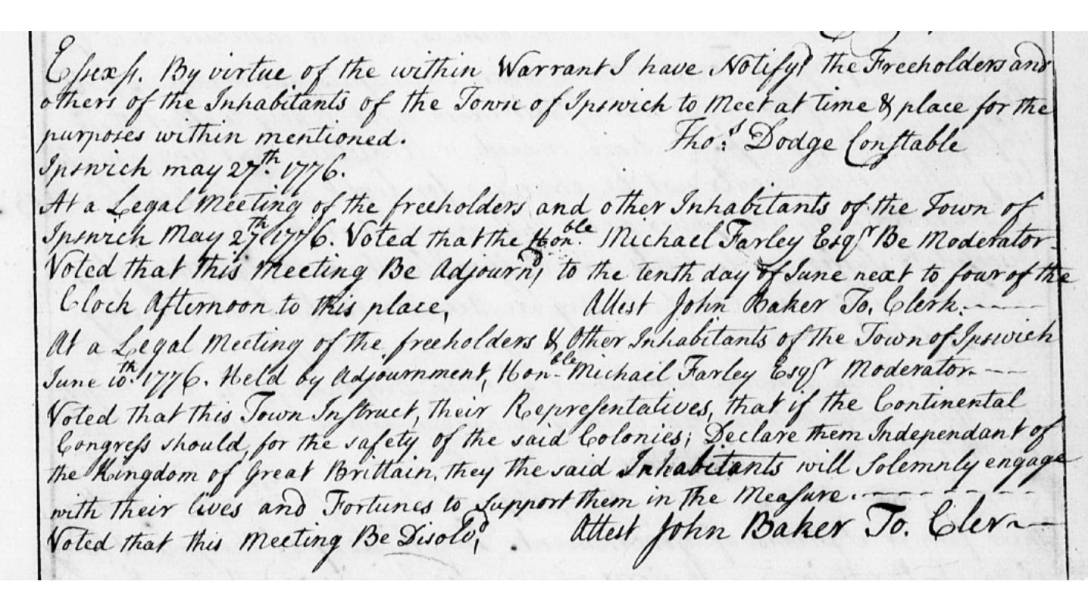 Essex ss. By virtue of the within Warrant I have Notifyd the Freeholders and
others of the Inhabitants of the Town of Ipswich to Meet at time & place for the
purposes within mentioned. Thos. Dodge Constable
Ipswich may 27th. 1776.
At a Legal Meeting of the freeholders and other Inhabitants of the Town of
Ipswich May 27th 1776. Voted that the Honble. Michael Farley Esqr Be Moderator
Voted that this Meeting Be Adjournd, to the tenth day of June next to four of the
Cloch Afternoon to this place, Attest John Baker To. Clerk.
At a Legal Meeting of the freeholders & Other Inhabitants of the Town of Ipswich
June 10th. 1776. Held by Adjournment, Honble Michail Farley Esqr Moderator
Voted that this Town Instruct, their Representatives, that if the Continental
Congress should, for the safety of the said Colonies; Declare them Independant of
the Kingdom of Great Brittain, they the said Inhabitants will Solemnly engage
with their lives and Fortunes to Support them in the Measure.
Voted that this Meeting Be Disolvd, Attest John Baker To. Cler